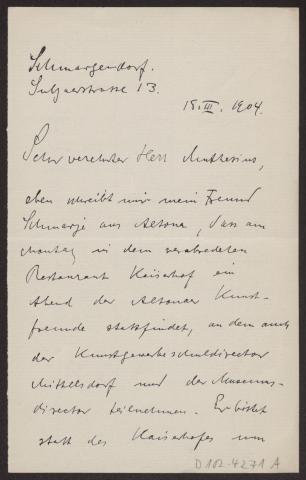 Schmargendorf.
Sulzaerstrasse 13.
18. III. 1904.
Sehr verehrter Herr Muthesius,
eben schreibt mir mein Freund
Schmarje aus Altona, dass am
Montag in dem verabredeten
Restaurant Kaiserhof ein
Abend der Altonaer Kunst-
freunde stattfindet, an dem auch
der Kunstgewerbeschuldirector
Mittelsdorf und der Museums-
director teilnehmen. Er bittet
statt des Kaiserhofes um
D 102-4271 A